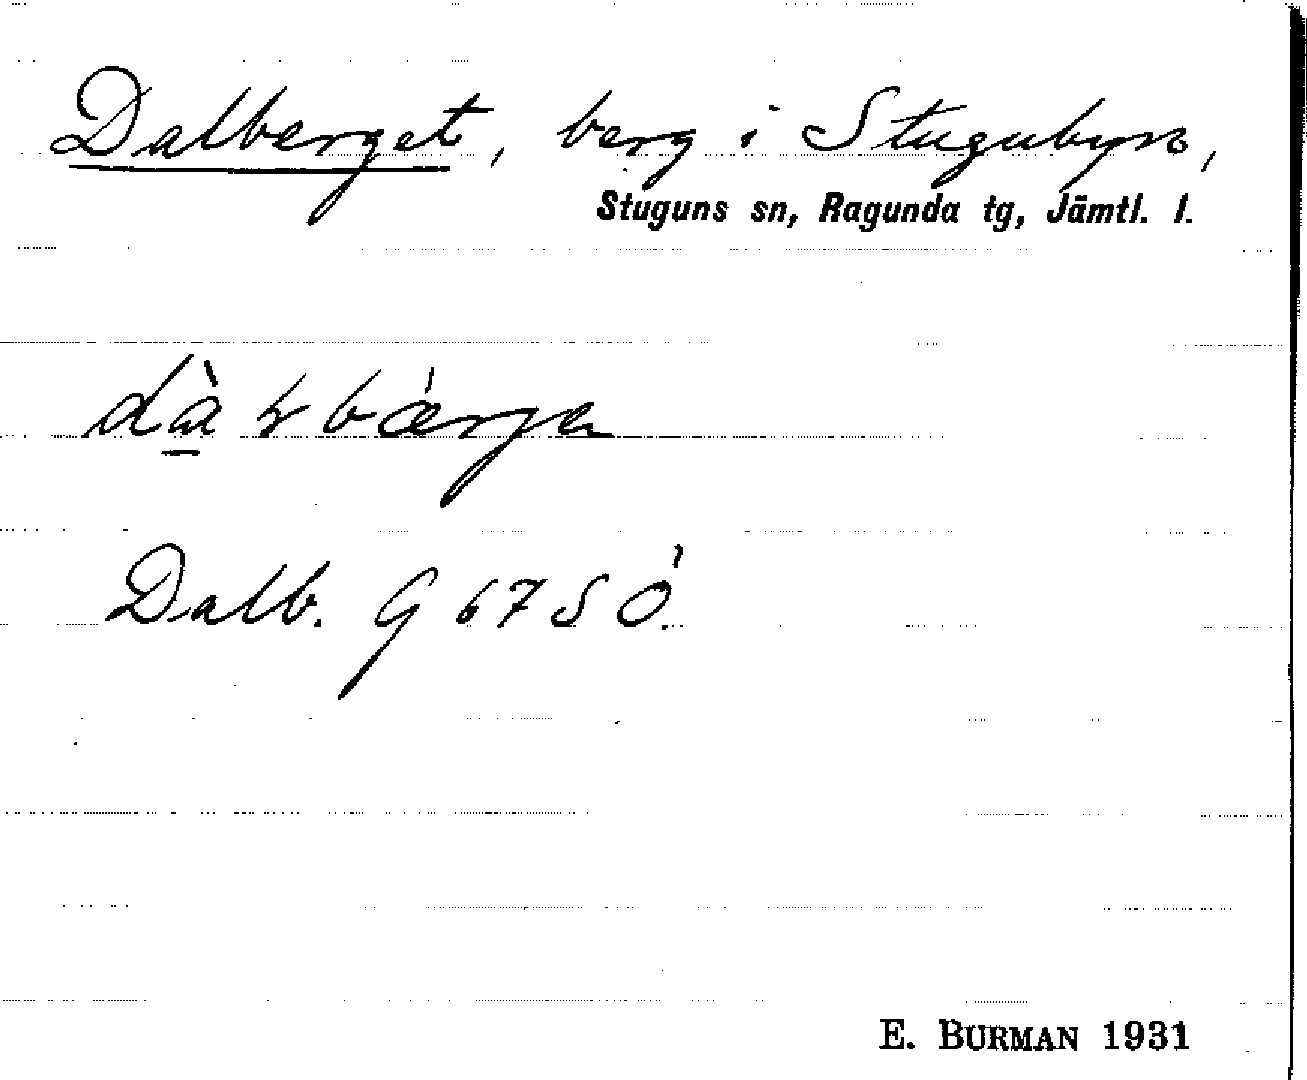 Dalberget, berg i Stugubyn,
Stuguns sn, Ragunda tg, Jämtl. l.
Dalb. G 67 S Ö.
E. BURMAN 1931